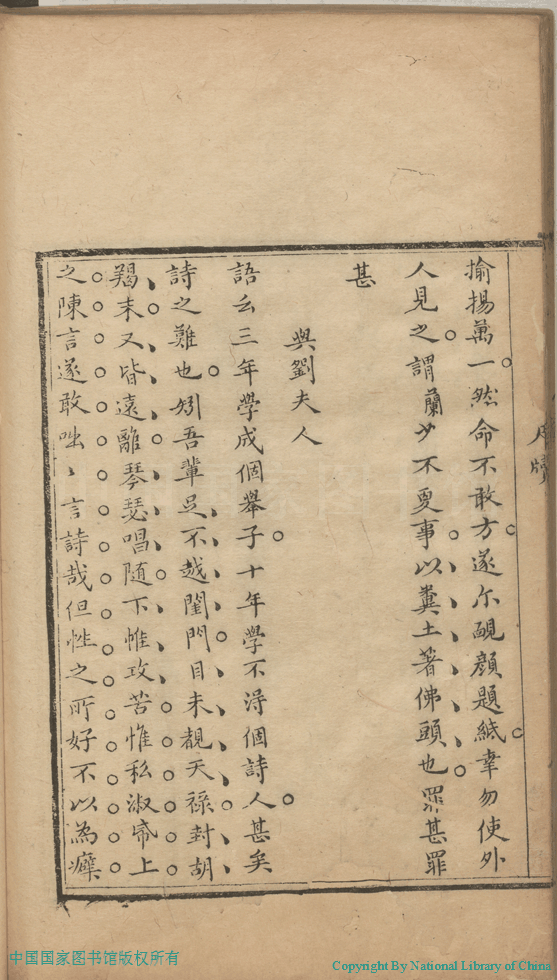 揄揚萬一然命不敢方遂尔靦顔題紙幸勿使外
人見之謂蘭少不更事以糞土著佛頭也罪甚罪
甚
與劉夫人
語云三年學成個舉子十年學不淂個詩人甚矣
詩之難也矧吾輩足不越閨門目未覩天禄封胡
羯末又皆遠離琴瑟唱随下帷攻苦惟私淑帋上
之陳言遂敢咄〻言詩哉但性之所好不以為癖
尺牘
中国国家图书馆版权所有
Copyright By National Library of China